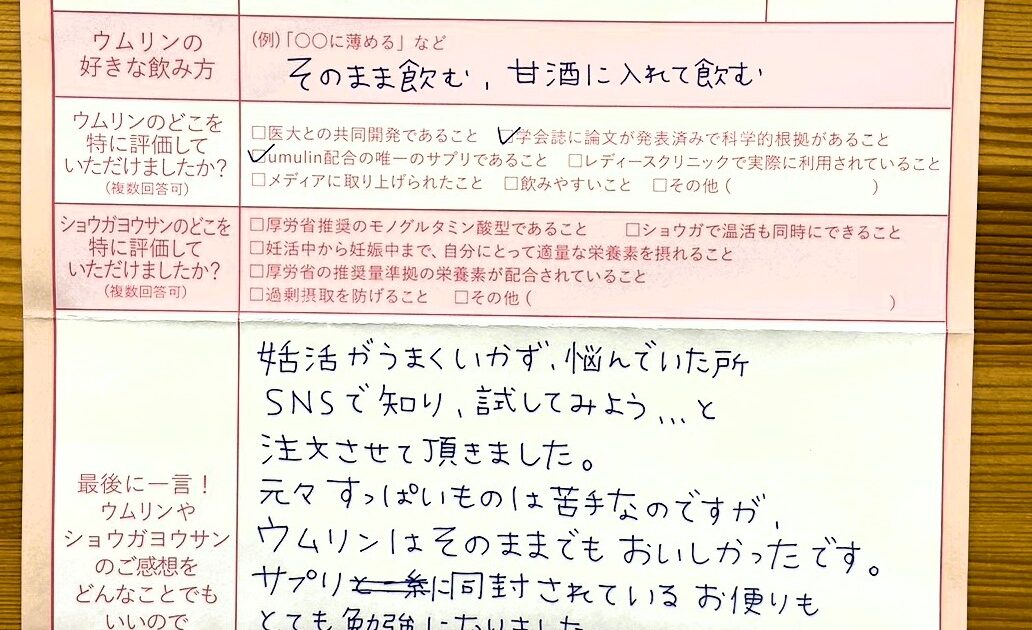 ウムリンの
好きな飲み方
(例)「〇〇に薄める」など
そのまま飲む, 甘酒に入れて飲む
ウムリンのどこを
特に評価して
いただけましたか?
(複数回答可)
□医大との共同開発であること ☑学会誌に論文が発表済みで科学的根拠があること
☑umulin配合の唯一のサプリであること □レディースクリニックで実際に利用されていること
□メディアに取り上げられたこと □飲みやすいこと □その他( )
ショウガヨウサンのどこを
特に評価して
いただけましたか?
(複数回答可)
□厚労省推奨のモノグルタミン酸型であること □ショウガで温活も同時にできること
□妊活中から妊娠中まで、自分にとって適量な栄養素を摂れること
□厚労省の推奨量準拠の栄養素が配合されていること
□過剰摂取を防げること □その他( )
最後に一言!
ウムリンや
ショウガヨウサン
のご感想を
どんなことでも
いいので
妊活がうまくいかず、悩んでいた所
SNSで知り、試してみよう...と
注文させて頂きました。
元々すっぱいものは苦手なのですが、
ウムリンはそのままでもおいしかったです。
サプリに同封されているお便りも
とても勉強になりました